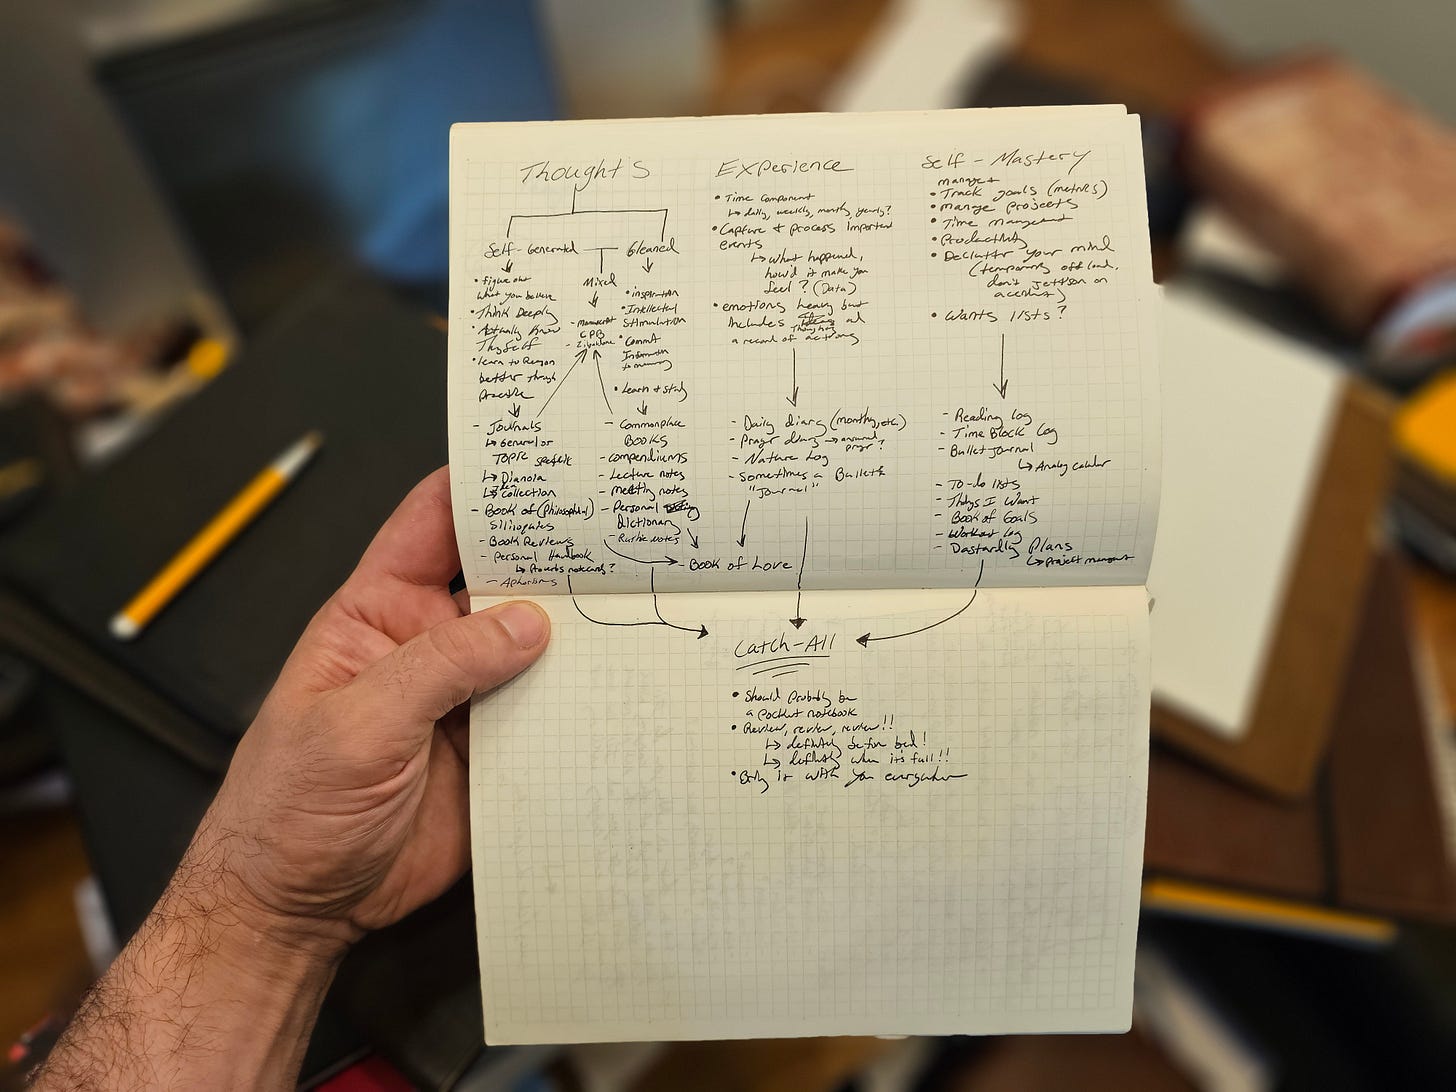 Thoughts
Self-Generated
Mixed
Gleaned
• figure out
what you believe
• Think Deeply
• Actually Know
Thyself
• learn to Reason
better through
practice
- Journals
↳ General or
Topic specific
↳ Dianoia
↳ Idea Collection
- Book of (Philosophical)
- Book Reviews
- Personal Handbook
↳ Proverbs notecards?
- Aphorisms
- manuscript
CPB
- Zibaldone
• inspiration
• Intellectual
Stimulation
• Commit
Information
to memory
• Learn & Study
- Commonplace
Books
- compendiums
- Lecture notes
- meeting notes
- Personal
Dictionary
Experience
• Time Component
↳ daily, weekly, monthly, yearly?
• Capture & process important
events
↳ What happened,
how'd it make you
feel? (Data)
• emotions heavy but
includes Thoughts and
a record of actions
- Daily diary (monthly, etc.)
- Prayer diary → answered
prayer?
- Nature Log
- Sometimes a Bullet
"Journal"
- Book of Love
Self-Mastery
manage +
• Track goals (metrics)
• manage projects
• Time management
• Productivity
• Declutter your mind
(temporarily offload,
don't jettison on
accident)
• Wants lists?
- Reading log
- Time Block Log
- Bullet Journal
↳ Analog calendar
- To-do lists
- Things I Want
- Book of Goals
- Workout log
- Dastardly Plans
↳ Project management
Catch-All
• Should probably be
a pocket notebook
• Review, review, review!!
↳ definitely before bed!
↳ definitely when it's full!!
• Bring it with you everywhere